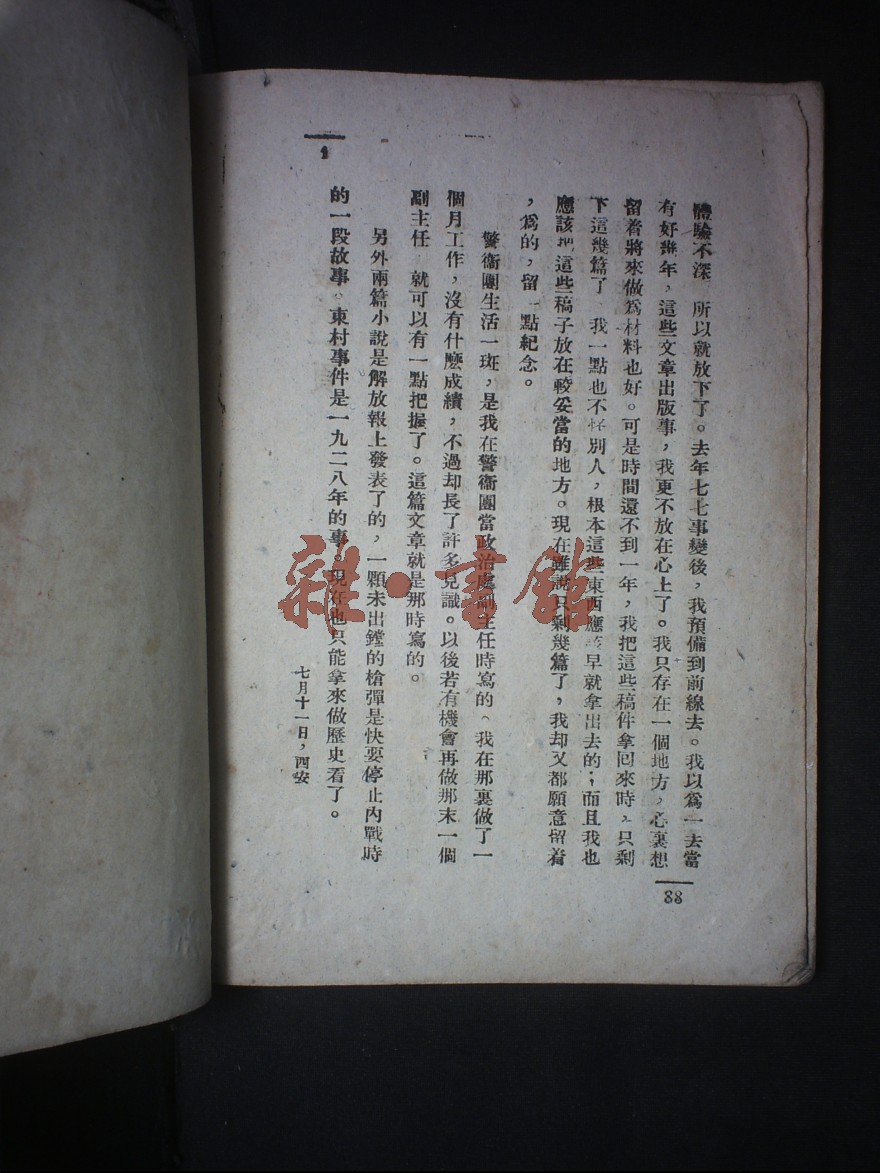 體驗不深 所以就放下了。去年七七事變後，我預備到前線去。我以爲一去當
有好幾年，這些文章出版事，我更不放在心上了。我只存在一個地方，心裏想
留着將來做爲材料也好。可是時間還不到一年，我把這些稿件拿回來時，只剩
下這幾篇了 我一點也不怪別人，根本這些東西應該早就拿出去的；而且我也
應該把這些稿子放在較妥當的地方。現在雖說只剩幾篇了，我却又都願意留着
，爲的，留一點紀念。
警衞團生活一斑，是我在警衞團當政治處副主任時寫的。我在那裏做了一
個月工作，沒有什麼成績，不過却長了許多見識。以後若有機會再做那末一個
副主任 就可以有一點把握了。這篇文章就是那時寫的。
另外兩篇小說是解放報上發表了的，一顆未出鏜的槍彈是快要停止內戰時
的一段故事。東村事件是一九二八年的事。現在也只能拿來做歷史看了。
七月十一日，西安
88
雜·書館